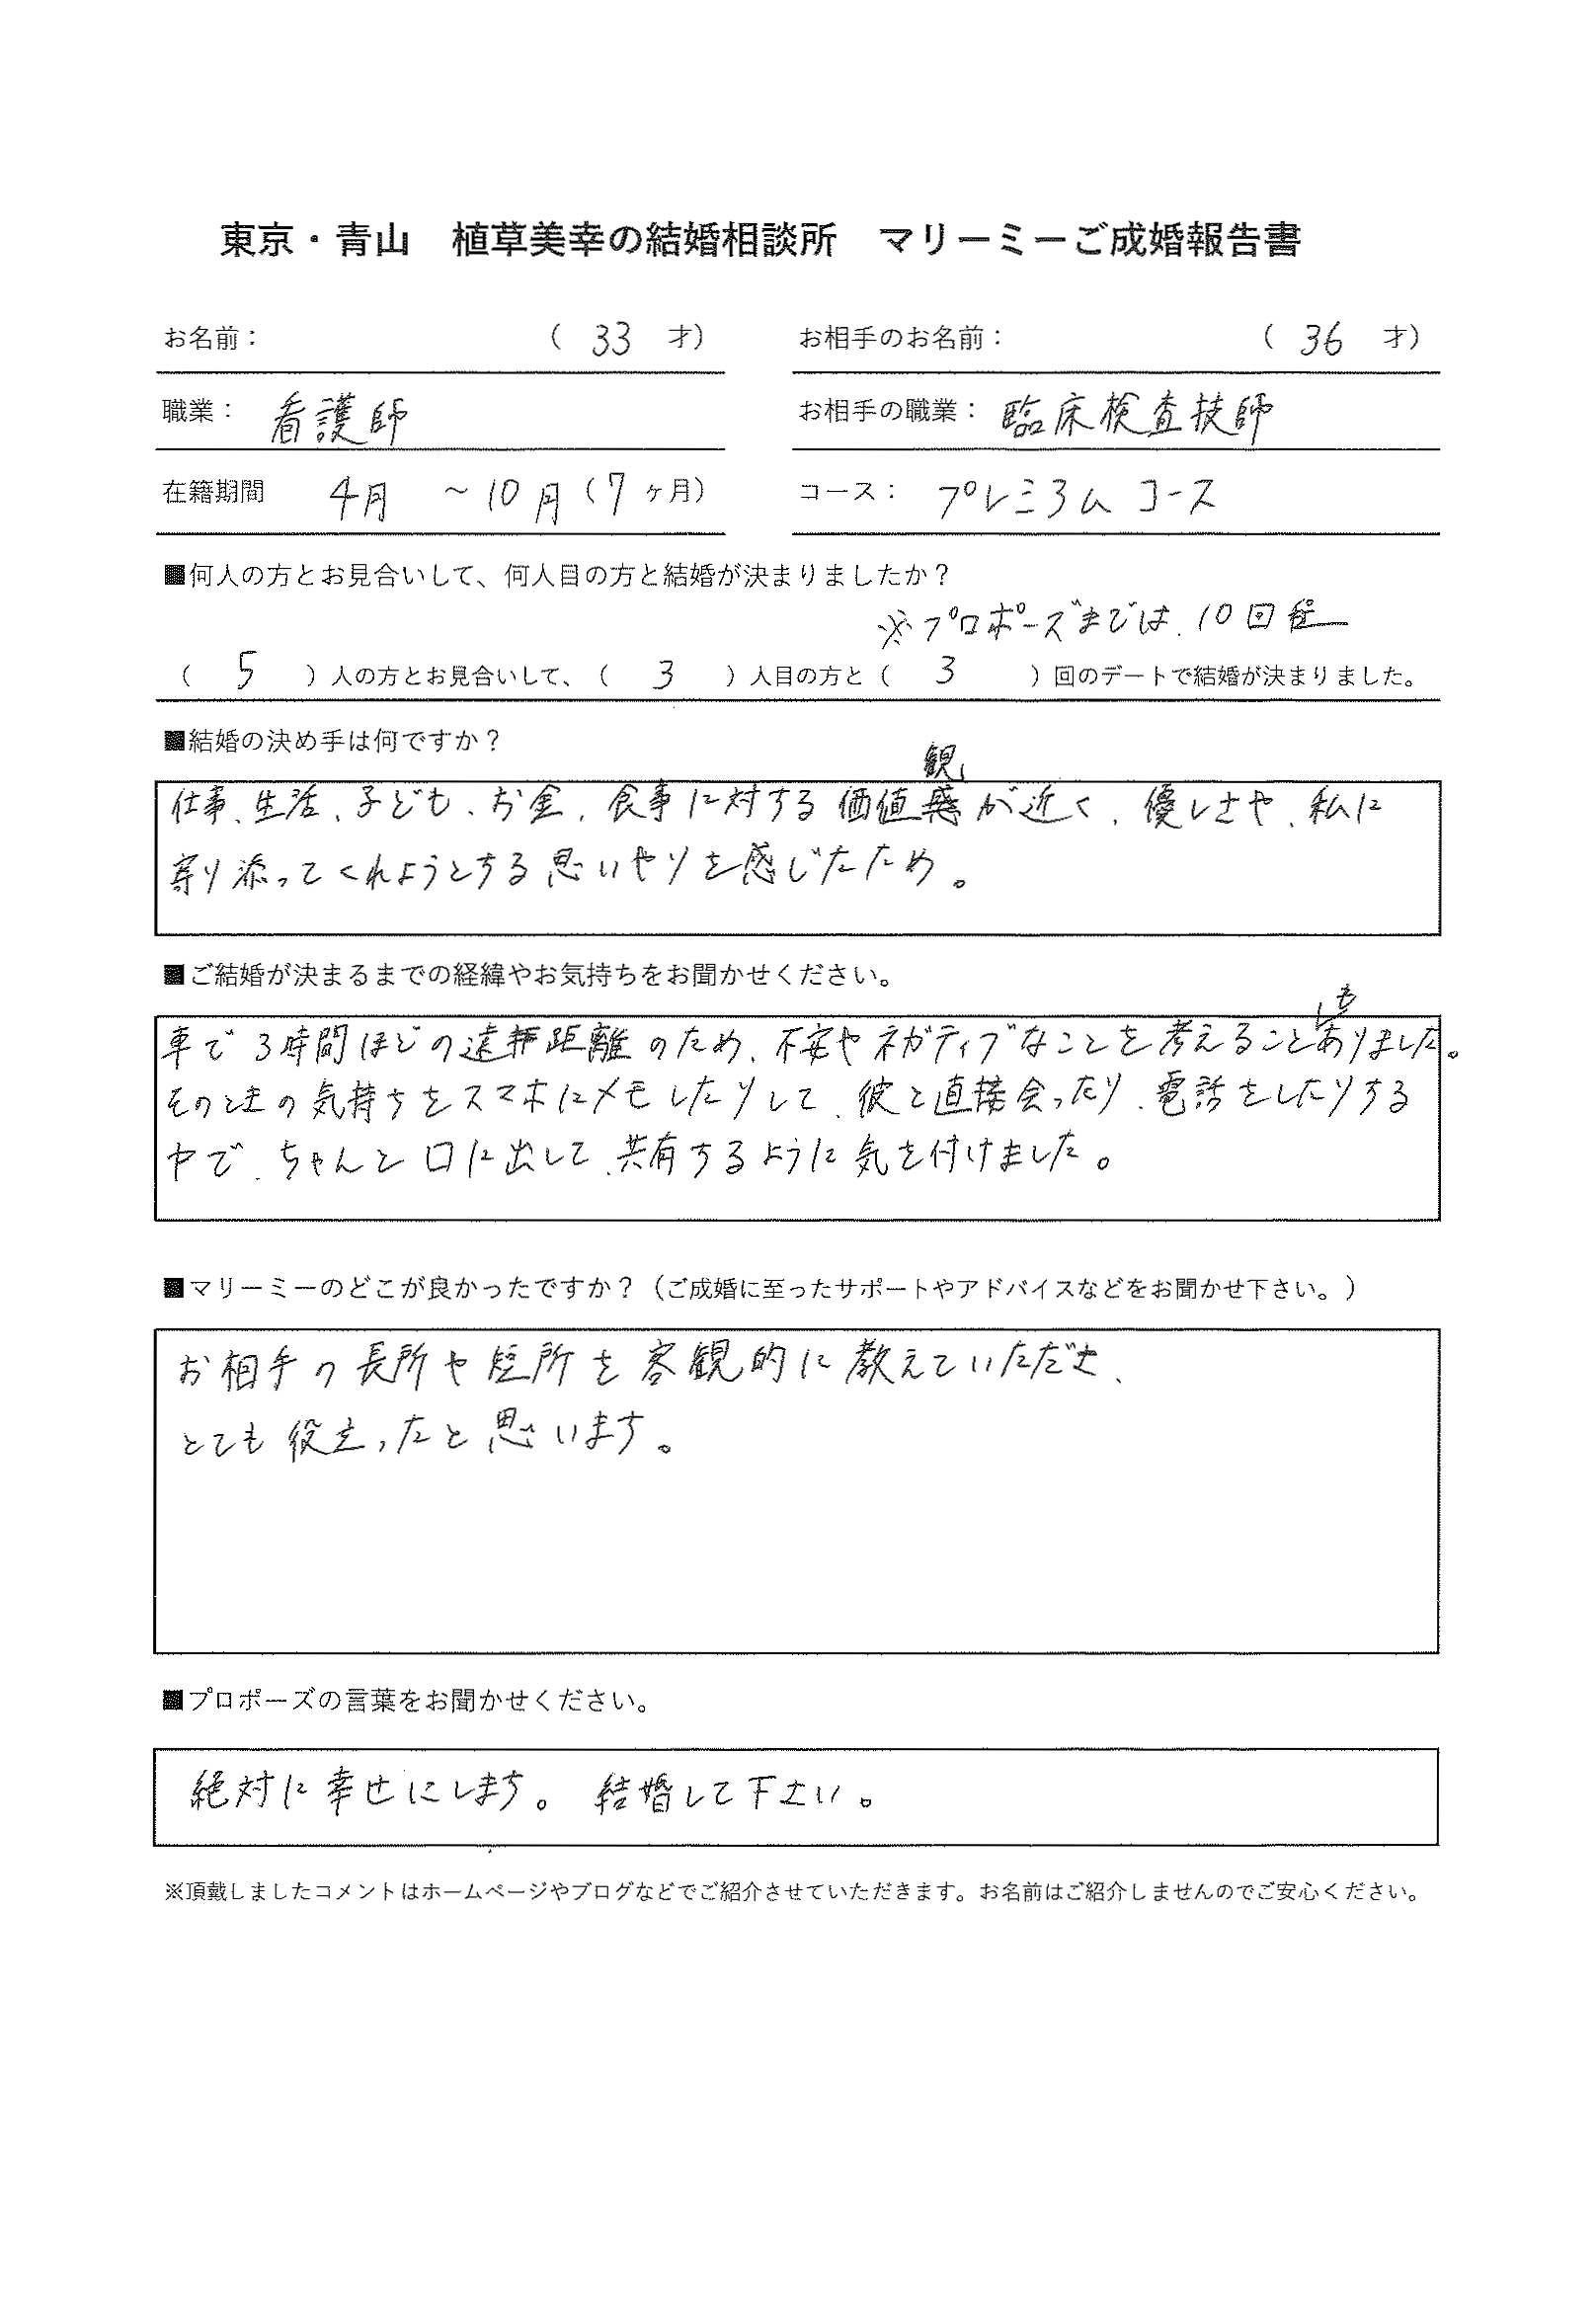 東京・青山　植草美幸の結婚相談所　マリーミーご成婚報告書
お名前：　（ 33 才）　お相手のお名前：　（ 36 才）
職業：　看護師　お相手の職業：　臨床検査技師
在籍期間　4月　～10月（7ヶ月）　コース：　プレミアムコース
■何人の方とお見合いして、何人目の方と結婚が決まりましたか？
※プロポーズまでは、10回程
（ 5 ）人の方とお見合いして、（ 3 ）人目の方と（ 3 ）回のデートで結婚が決まりました。
■結婚の決め手は何ですか？
仕事、生活、子ども、お金、食事に対する価値観が近く、優しさや、私に
寄り添ってくれようとする思いやりを感じたため。
■ご結婚が決まるまでの経緯やお気持ちをお聞かせください。
車で3時間ほどの遠距離のため、不安やネガティブなことを考えることもありました。
そのときの気持ちをスマホにメモしたりして、彼と直接会ったり、電話をしたりする
中で、ちゃんと口に出して、共有するように気を付けました。
■マリーミーのどこが良かったですか？（ご成婚に至ったサポートやアドバイスなどをお聞かせ下さい。）
お相手の長所や短所を客観的に教えていただき、
とても役立ったと思います。
■プロポーズの言葉をお聞かせください。
絶対に幸せにします。結婚して下さい。
※頂戴しましたコメントはホームページやブログなどでご紹介させていただきます。お名前はご紹介しませんのでご安心ください。